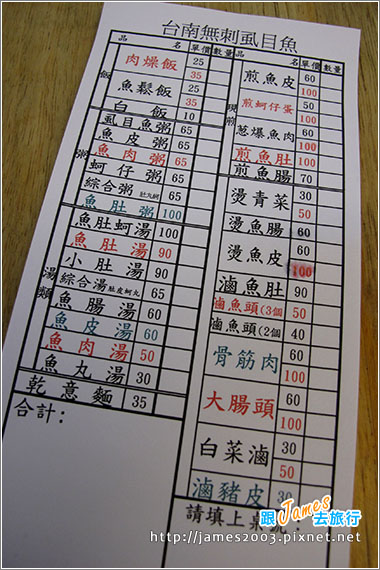 台南無刺虱目魚
品 名 單價 數量
飯
肉燥飯 25
35
魚鬆飯 25
35
白飯 10
粥
虱目魚粥
魚皮粥 65
魚肉粥 65
蚵仔粥 65
綜合粥 肚丸蚵 65
魚肚粥 100
湯類
魚肚蚵湯 100
魚肚湯 90
小肚湯 90
綜合湯 肚皮蚵丸 65
魚腸湯 60
魚皮湯 60
魚肉湯 50
魚丸湯 30
乾意麵 35
合計:
品 名 單價 數量
現煎
煎魚皮 60
100
煎蚵仔蛋 50
蔥爆魚肉 60
100
煎魚肚 100
煎魚腸 70
燙青菜 30
50
燙魚腸 60
燙魚皮 60
100
滷魚肚 90
滷魚頭(3個 50
滷魚頭(2個 40
骨筋肉 60
100
大腸頭 60
100
白菜滷 30
50
滷豬皮 30
請填上桌號:
跟James去旅行
http://james2003.pixnet.net